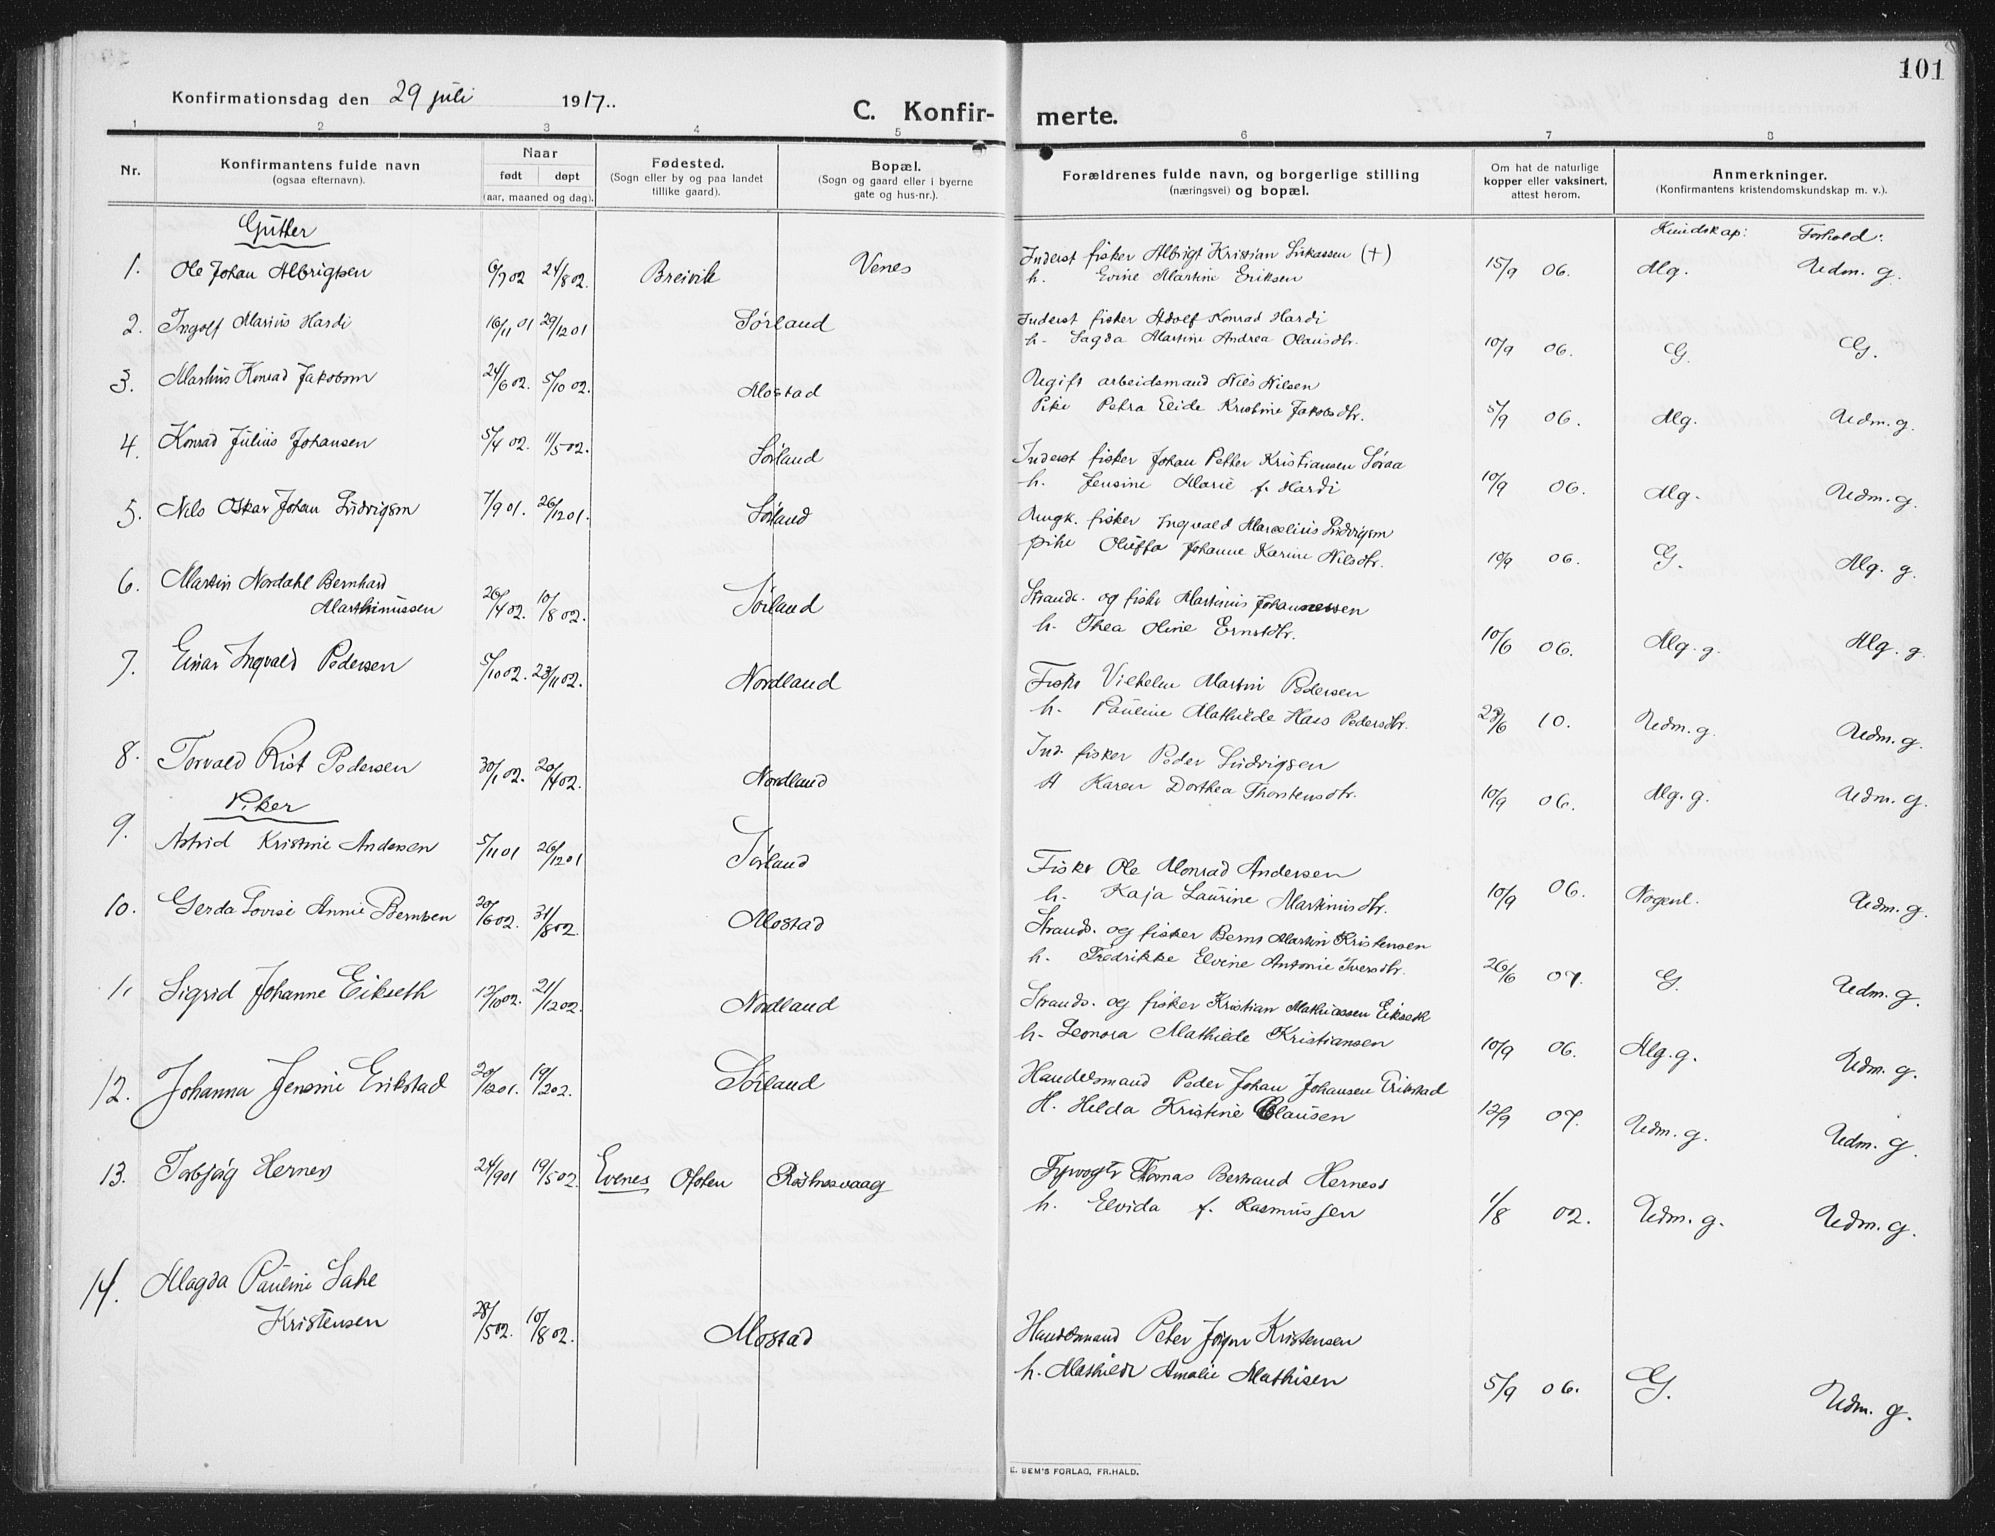 101
Konfirmationsdag den 29 juli 1917.
C. Konfir- merte.
1 2 3 4 5 6 7 8
Nr.
Konfirmantens fulde navn
(ogsaa efternavn).
Naar
født døpt
(aar, maaned og dag).
Fødested.
(Sogn eller by og paa landet
tillike gaard).
Bopæl.
(Sogn og gaard eller i byerne
gate og hus-nr.).
Forældrenes fulde navn, og borgerlige stilling
(næringsvei) og bopæl.
Om hat de naturlige
kopper eller vaksinert,
attest herom.
Anmerkninger.
(Konfirmantens kristendomskundskap m. v.).
Gutter
Kundskap: Forhold:
1. Ole Johan Albrigtsen 6/7 02 24/8 02. Breivik Venes Inderst fisker Albrigt Kristian Lukassen (+) 15/9 06. Mg. Udm. g.
h. Evine Martine Eriksen
2. Ingolf Marius Hardi 16/11 01 29/12 01 Sørland Inderst fisker Adolf Konrad Hardi
h. Magda Martine Andrea Olausdtr. 10/9 06. G. G.
3. Marius Konrad Jakobsen 24/6 02. 5/10 02. Mostad Ugift arbeidsmand Nils Nilsen
Pike Petra Elide Kristine Jakobsdtr. 5/9 06. Mg. Udm. g.
4. Konrad Julius Johansen 5/4 02. 11/5 02. Sørland Inderst fisker Johan Petter Kristiansen Søraa
h. Jensine Marie f. Hardi 10/9 06. Mg. Udm. g.
5. Nils Oskar Johan Ludvigsen 7/9 01. 26/12 01. Sørland Ungk. fisker Ingvald Marcelius Ludvigsen
pike Oluffa Johanne Karine Nilsdtr. 10/9 06. G. Mg. g.
6. Martin Nordahl Bernhard
Marthinussen 26/4 02. 10/8 02. Sørland Strands. og fisker Martinus Johannessen
h. Thea Oline Ernstdtr. 10/6 06. Mg. g. Mg. g.
7. Einar Ingvald Pedersen 5/10 02. 23/11 02. Nordland Fisker Vilhelm Martin Pedersen
h. Pauline Mathilde Hass Pedersdtr. 28/6 10. Udm. g. Udm. g.
8. Torvald Rist Pedersen 30/1 02. 20/4 02. Nordland Ind. fisker Peder Ludvigsen
H Karen Dorthea Thorstensdtr. 10/9 06. Mg. g. Udm. g.
Piker
9. Astrid Kristine Andersen 5/11 01 26/12 01 Sørland Fisker Ole Monrad Andersen
h. Kaja Laurine Martinusdtr. 10/9 06. Nogenl. Udm. g.
10. Gerda Lovise Annie Berntsen 20/6 02. 31/8 02. Mostad Strands. og fisker Bernt Martin Kristensen
h. Fredrikke Elvine Antonie Iversdtr. 26/6 07. G. Udm. g.
11 Sigrid Johanne Eikseth 12/10 02. 21/12 02. Nordland Strands. og fisker Kristian Mathiassen Eikseth
h. Leonora Mathilde Kristiansen 10/9 06. Mg. g. Udm. g.
12. Johanna Jensine Erikstad 20/12 01. 19/2 02. Sørland Handelsmand Peder Johan Johansen Erikstad
H. Hilda Kristine Clausen 12/9 07. Udm. g. Udm. g.
13. Torbjøg Hernes 24/9 01 19/5 02. Evenes Ofoten Røstnesvaag Fyrvogtr Thomas Bertrand Herness
h. Elvida f. Rasmussen 1/8 02. Udm. g. Udm. g.
14. Magda Pauline Sake
Kristensen 28/5 02. 10/8 02. Mostad Handelsmand Peter Jørgen Kristensen
h. Mathilde Amalie Mathisen 5/9 06. G. Udm. g.
E. SEM'S FORLAG, FR.HALD.